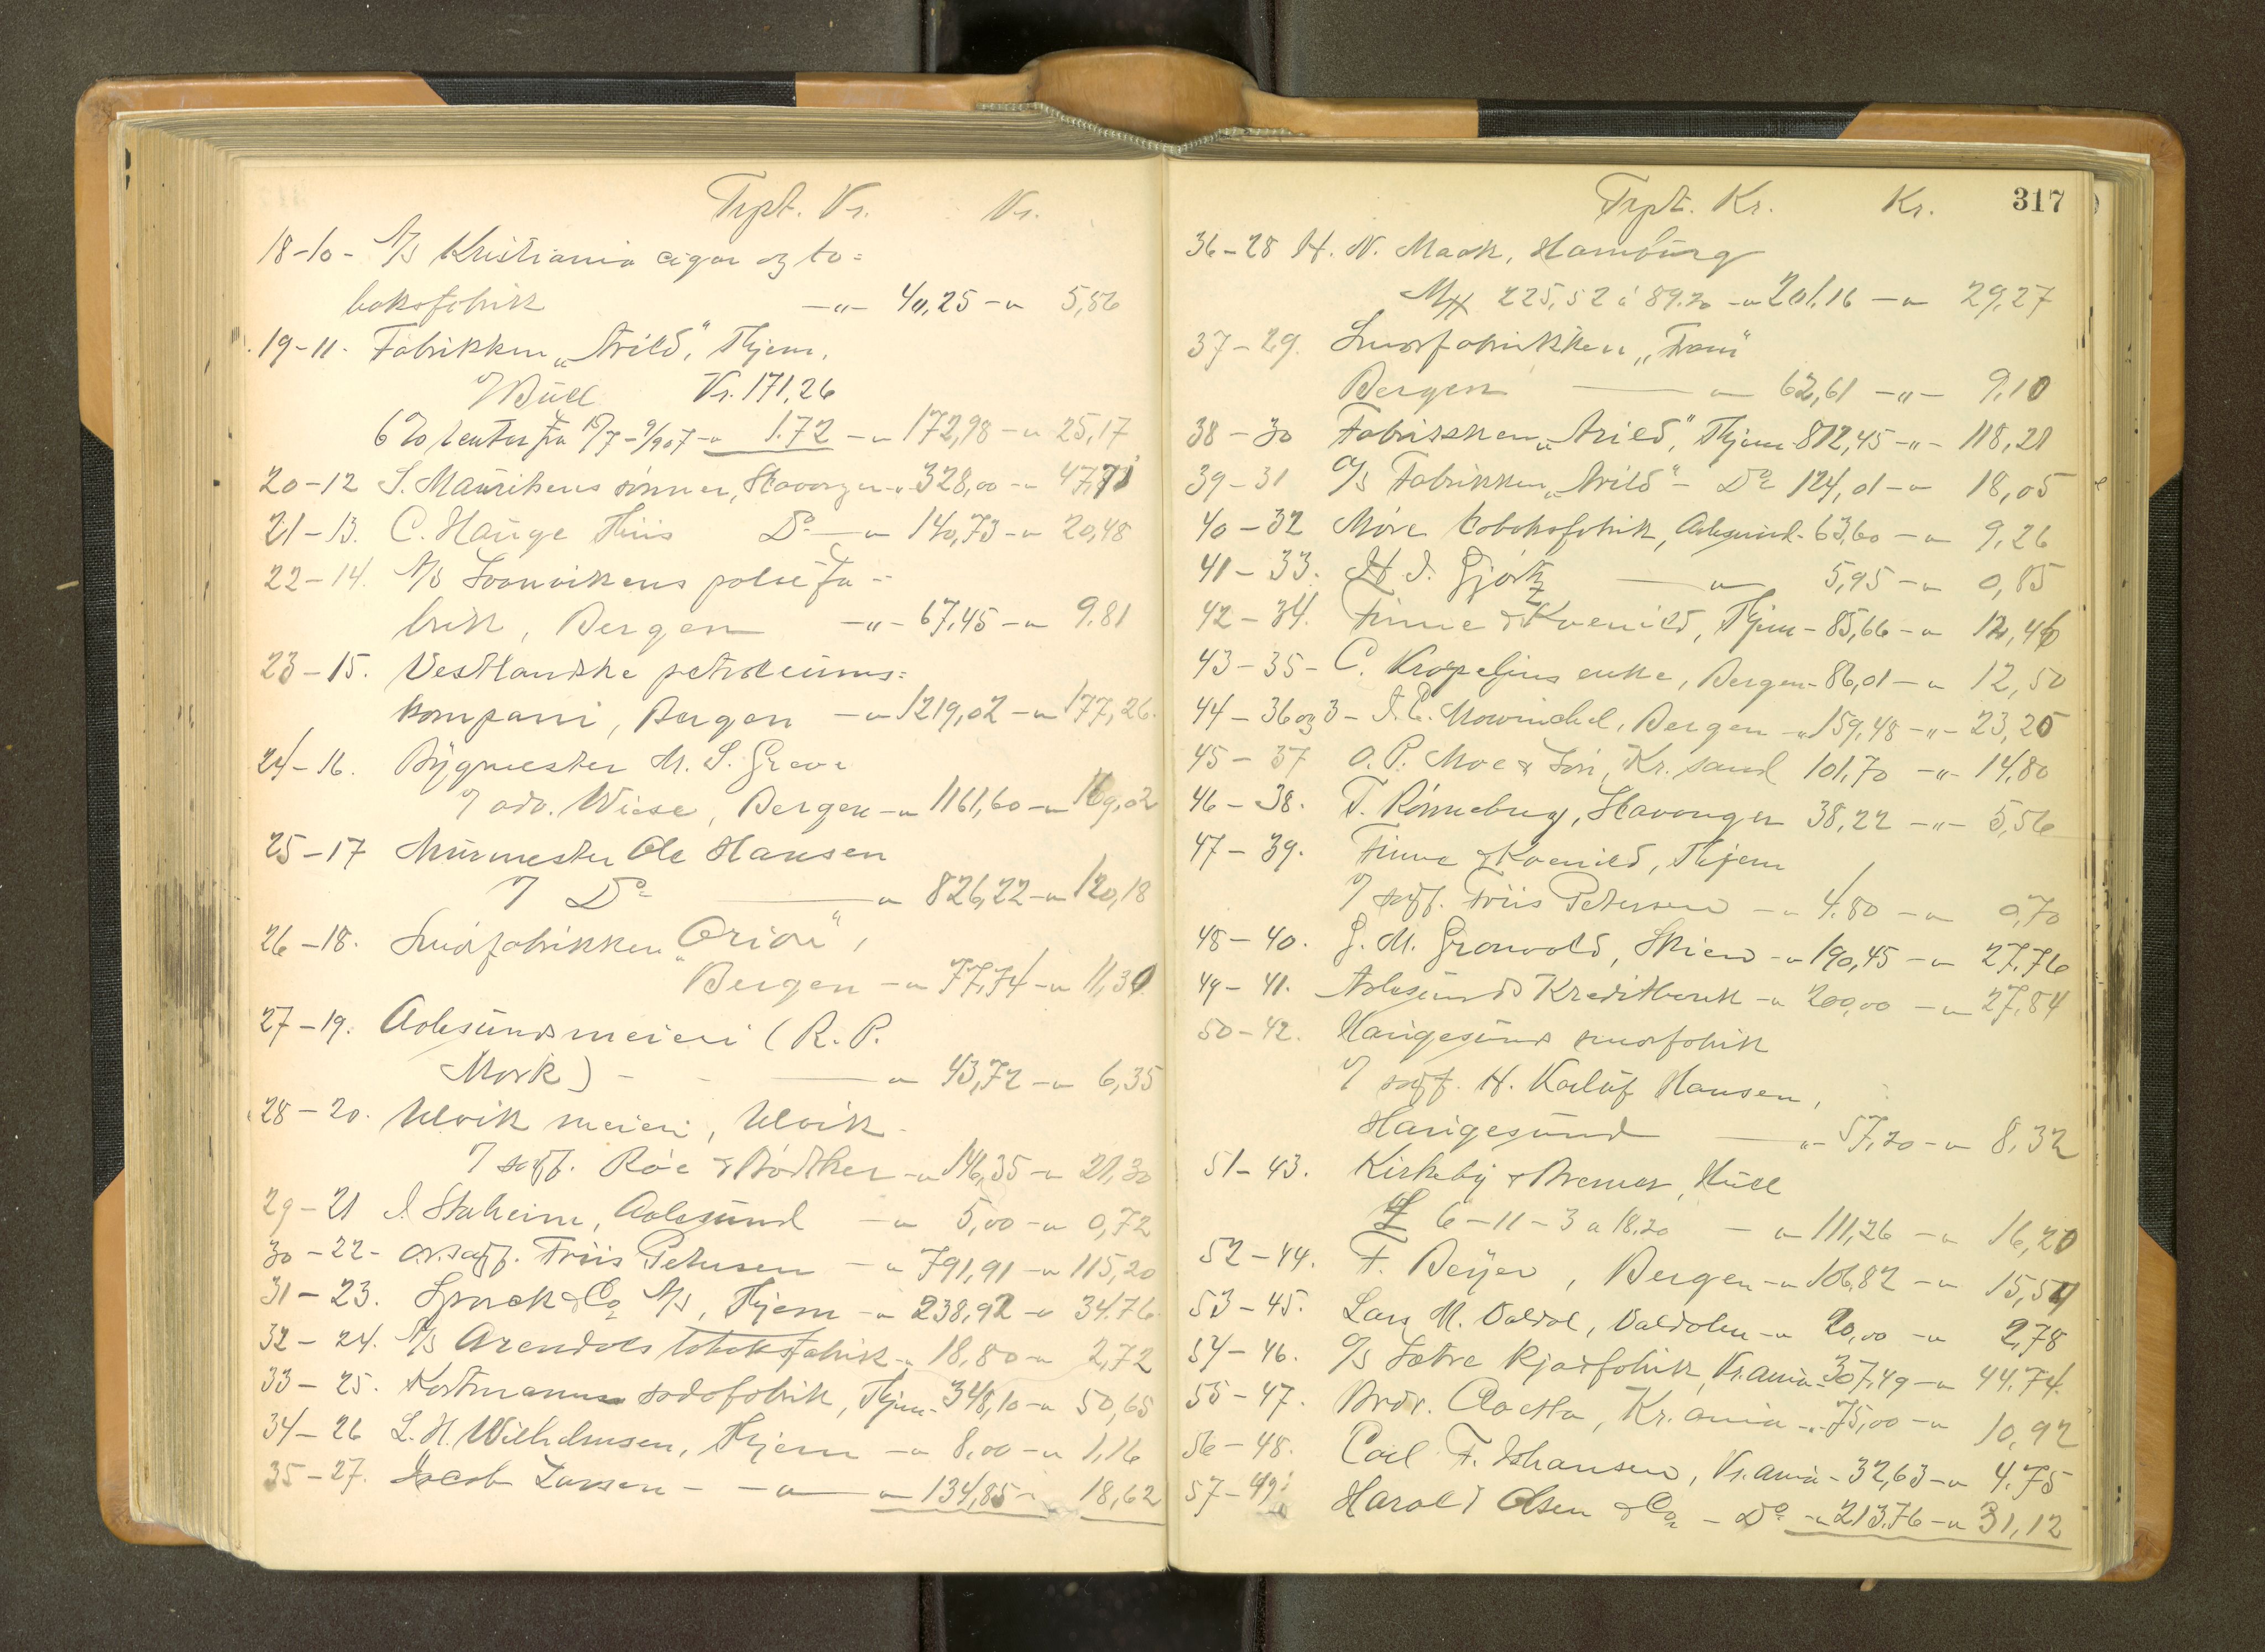 Trpt. Kr. Kr.
18-10- A/S Kristiania cigar og to=
baksfabrik -"- 40,25 -"- 5,86
19-11- Fabrikken "Arild", Thjem.
v/ Bull Kr. 171,26
6% renter fra 15/7-9/907 -"- 1.72 -"- 172,98 -"- 25,17
20-12 S. Mauritzens sønner, Stavanger -"- 328,00 -"- 47,71
21-13. C. Hauge Thiis Do -"- 140,73 -"- 20,48
22-14. A/S Loonvikens pølsefa=
brik, Bergen -"- 67,45 -"- 9,81
23-15. Vestlandske petroleums=
kompani, Bergen -"- 1219,02 -"- 177,26
24-16. Bygmester M. S. Greve
v/ adv. Wiese, Bergen -"- 1161,60 -"- 169,02
25-17 Murmester Ole Hansen
v/ Do -"- 826,22 -"- 120,18
26-18. Smørfabrikken "Orion",
Bergen -"- 77,74 -"- 11,30
27-19. Aalesundsmeieri (R. P.
Mork) - -"- 43,72 -"- 6,35
28-20. Ulvik meieri, Ulvik
v/ sagf. Røe & Bødtker -"- 146,35 -"- 21,30
29-21 I. Staheim, Aalesund -"- 5,00 -"- 0,72
30-22- o.r.sagf. Friis Petersen -"- 791,91 -"- 115,20
31-23. Sprock & Co A/S, Thjem -"- 238,92 -"- 34,76
32-24. A/S Arendals tobaksfabrik -"- 18,80 -"- 2,72
33-25. Kortmanns sodafabrik, Thjem - 348,10 -"- 50,65
34-26 L. H. Wilhelmsen, Thjem -"- 8,00 -"- 1,16
35-27. Jacob Larsen - -"- -"- 134,85 - 18,62
Trpt. Kr. Kr. 317
36-28 H. N. Maack, Hamburg
Mk 225,52 á 89.20 -"- 201,16 -"- 29,27
37-29. Smørfabrikken "Fram"
Bergen -"- 62,61 -"- 9,10
38-30 Fabrikken "Arild", Thjem 812,45 -"- 118,21
39-31 A/S Fabrikken "Arild" - Do 124,01 -"- 18,05
40-32 Møre tobaksfabrik, Aalesund - 63,60 -"- 9,26
41-33. H. I. Gjørtz -"- 5,95 -"- 0,85
42-34. Finne & Kvenild, Thjem - 85,66 -"- 12,46
43-35- C. Krøpeliens enke, Bergen - 86,01 -"- 12,50
44-36 og 3- J. C. Mowinckel, Bergen -"- 159,48 -"- 23,20
45-37 O. P. Moe & Søn, Kr. sand 101,70 -"- 14,80
46-38. T. Rønneberg, Stavanger 38,22 -"- 5,56
47-39. Finne & Kvenild, Thjem
v/ sagf. Friis Petersen -"- 4.80 -"- 0,70
48-40. G. M. Gronvold, Skien -"- 190,45 -"- 27,76
49-41. Aalesunds Kreditbank -"- 200,00 -"- 27,84
50-42. Haugesunds smørfabrik
v/ sagf. H. Kaluf Hansen,
Haugesund -"- 57,20 -"- 8,32
51-43. Kirkeby & Bremer, Hull
£ 6-11-3 a 18.20 -"- 111,26 -"- 16,20
52-44. F. Beyer, Bergen -"- 106,82 -"- 15,54
53-45. Lars M. Valdal, Valdalen -"- 20,00 -"- 2,78
54-46. A/S Sætre kjæxfabrik, Kr.ania - 307,49 -"- 44,74.
55-47. Brdr. Aaetta, Kr.ania -"- 75,00 -"- 10,92
56-48. Carl F. Johansen, Kr.ania - 32,63 -"- 4.75
57-49. Harald Olsen & Co - Do -"- 213,76 -"- 31,12